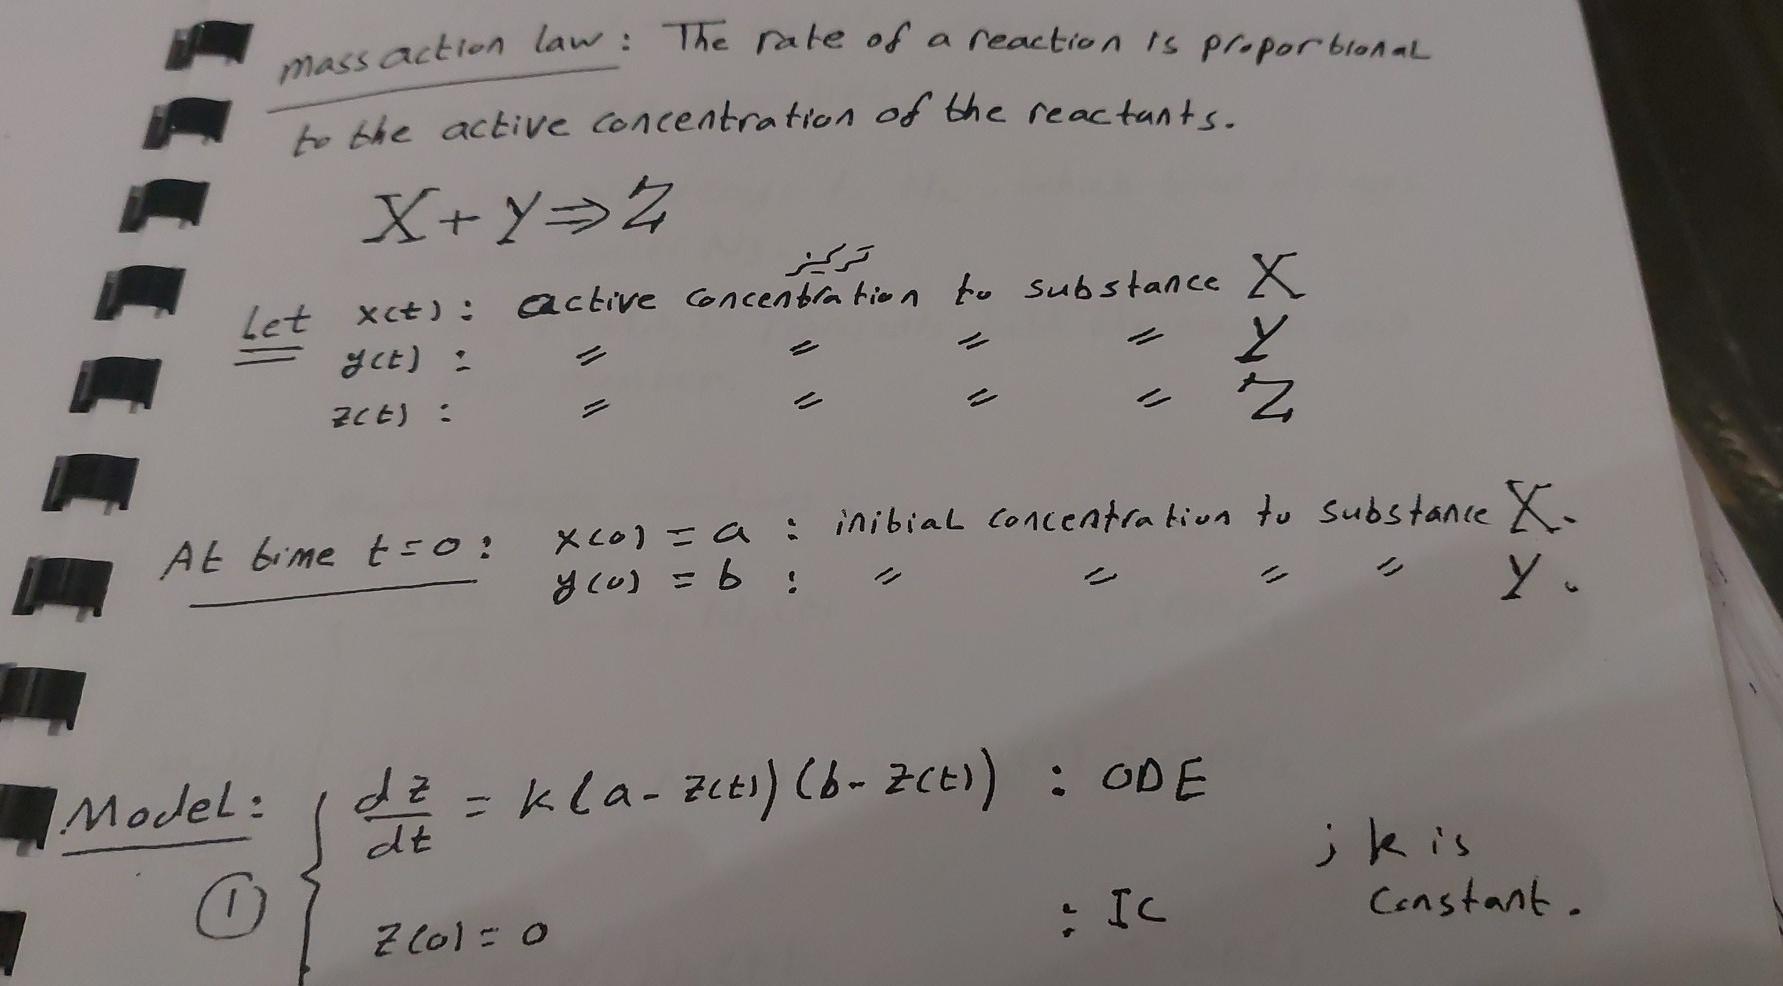 mass action law: The rate of a reaction is proportional
to the active concentration of the reactants.
X + Y ⇒ Z
تركيز
Let x(t): active concentration to substance X
y(t) : = = = = Y
z(t) : = = = = Z
At time t=0: x(0) = a : initial concentration to substance X.
y(0) = b : = = = = Y.
Model: { dz/dt = k(a - z(t))(b - z(t)) : ODE
; k is
① z(0) = 0 : IC constant.